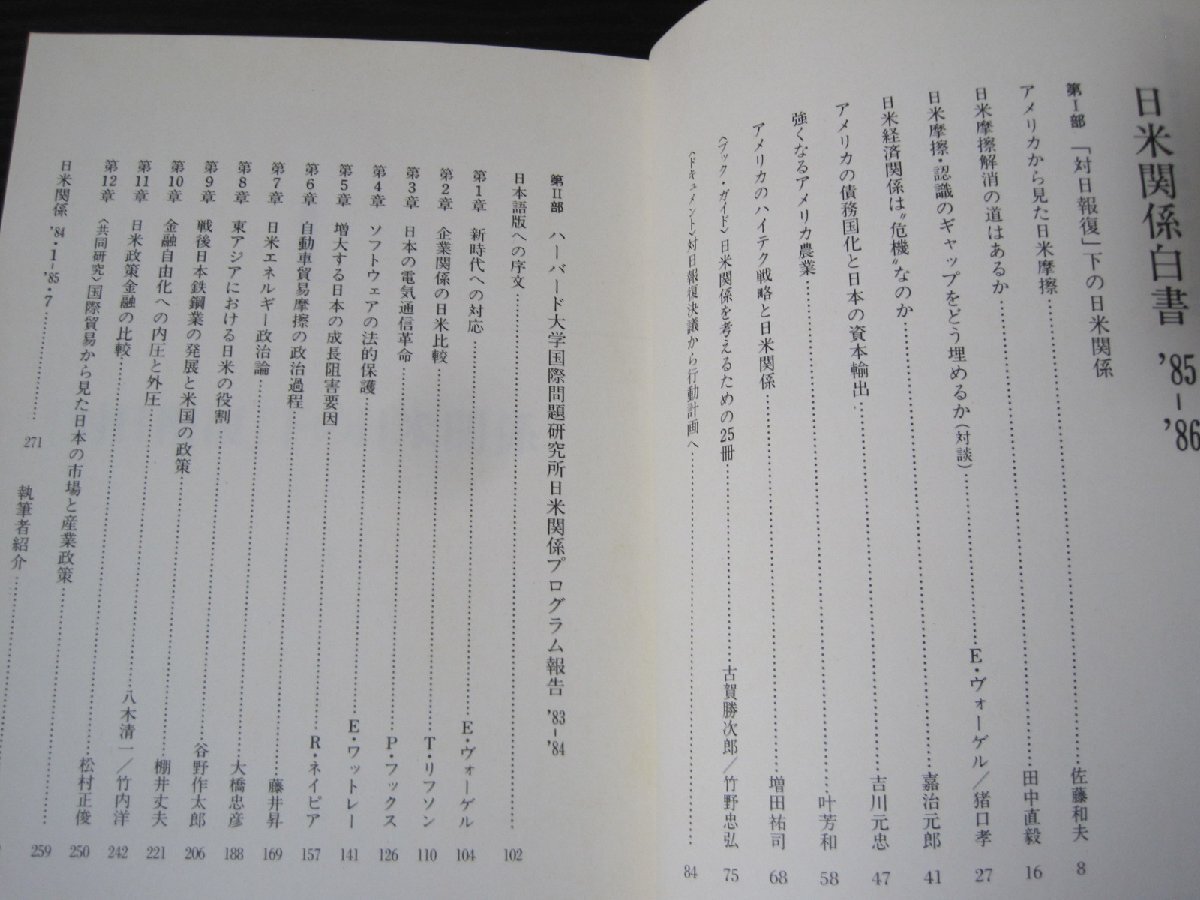 日米関係白書 '85–'86
第I部 「対日報復」下の日米関係
アメリカから見た日米摩擦……佐藤和夫 8
日米摩擦解消の道はあるか……田中直毅 16
日米摩擦・認識のギャップをどう埋めるか(対談)……E・ヴォーゲル/猪口孝 27
日米経済関係は“危機”なのか……嘉治元郎 41
アメリカの債務国化と日本の資本輸出……吉川元忠 47
強くなるアメリカ農業……叶芳和 58
アメリカのハイテク戦略と日米関係……増田祐司 68
〈ブック・ガイド〉日米関係を考えるための25冊……古賀勝次郎/竹野忠弘 75
〈ドキュメント〉対日報復決議から行動計画へ……84
第II部 ハーバード大学国際問題研究所日米関係プログラム報告 '83–'84
日本語版への序文……102
第1章 新時代への対応……E・ヴォーゲル 104
第2章 企業関係の日米比較……T・リフソン 110
第3章 日本の電気通信革命……P・フックス 126
第4章 ソフトウェアの法的保護……E・ワットレー 141
第5章 増大する日本の成長阻害要因……R・ネイピア 157
第6章 自動車貿易摩擦の政治過程……藤井昇 169
第7章 日米エネルギー政治論……大橋忠彦 188
第8章 東アジアにおける日米の役割……谷野作太郎 206
第9章 戦後日本鉄鋼業の発展と米国の政策……棚井丈夫 221
第10章 金融自由化への内圧と外圧……八木清一/竹内洋 242
第11章 日米政策金融の比較……松村正俊 250
第12章 〈共同研究〉国際貿易から見た日本の市場と産業政策……259
日米関係 '84・1–'85・7……271
執筆者紹介……